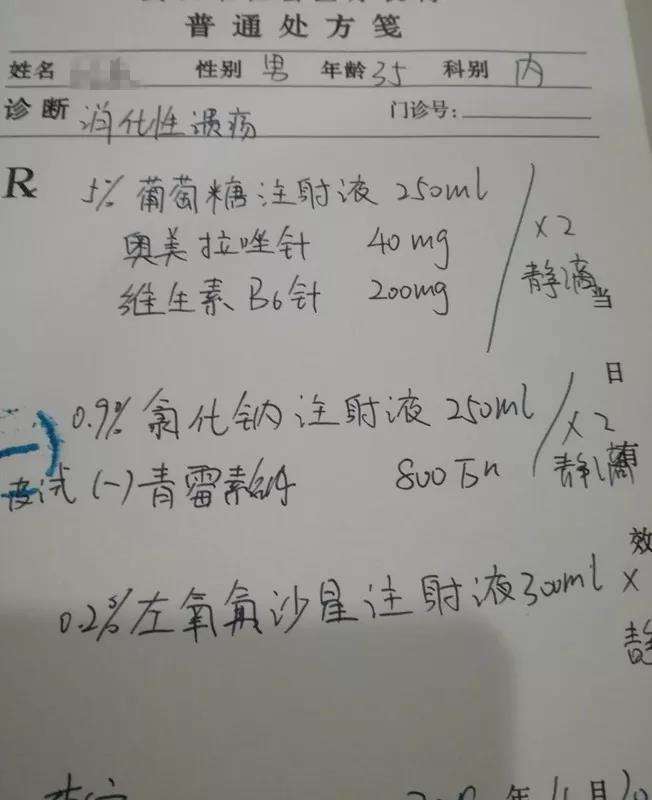 普通处方笺
姓名 性别 男 年龄 35 科别 内
诊断 消化性溃疡 门诊号:
R 5% 葡萄糖注射液 250ml
奥美拉唑针 40mg ×2
维生素B6针 200mg 静滴
当
日
有
效
0.9% 氯化钠注射液 250ml ×2
皮试(一)青霉素钠 800万u 静滴
0.2% 左氧氟沙星注射液 300ml ×
静
年11月